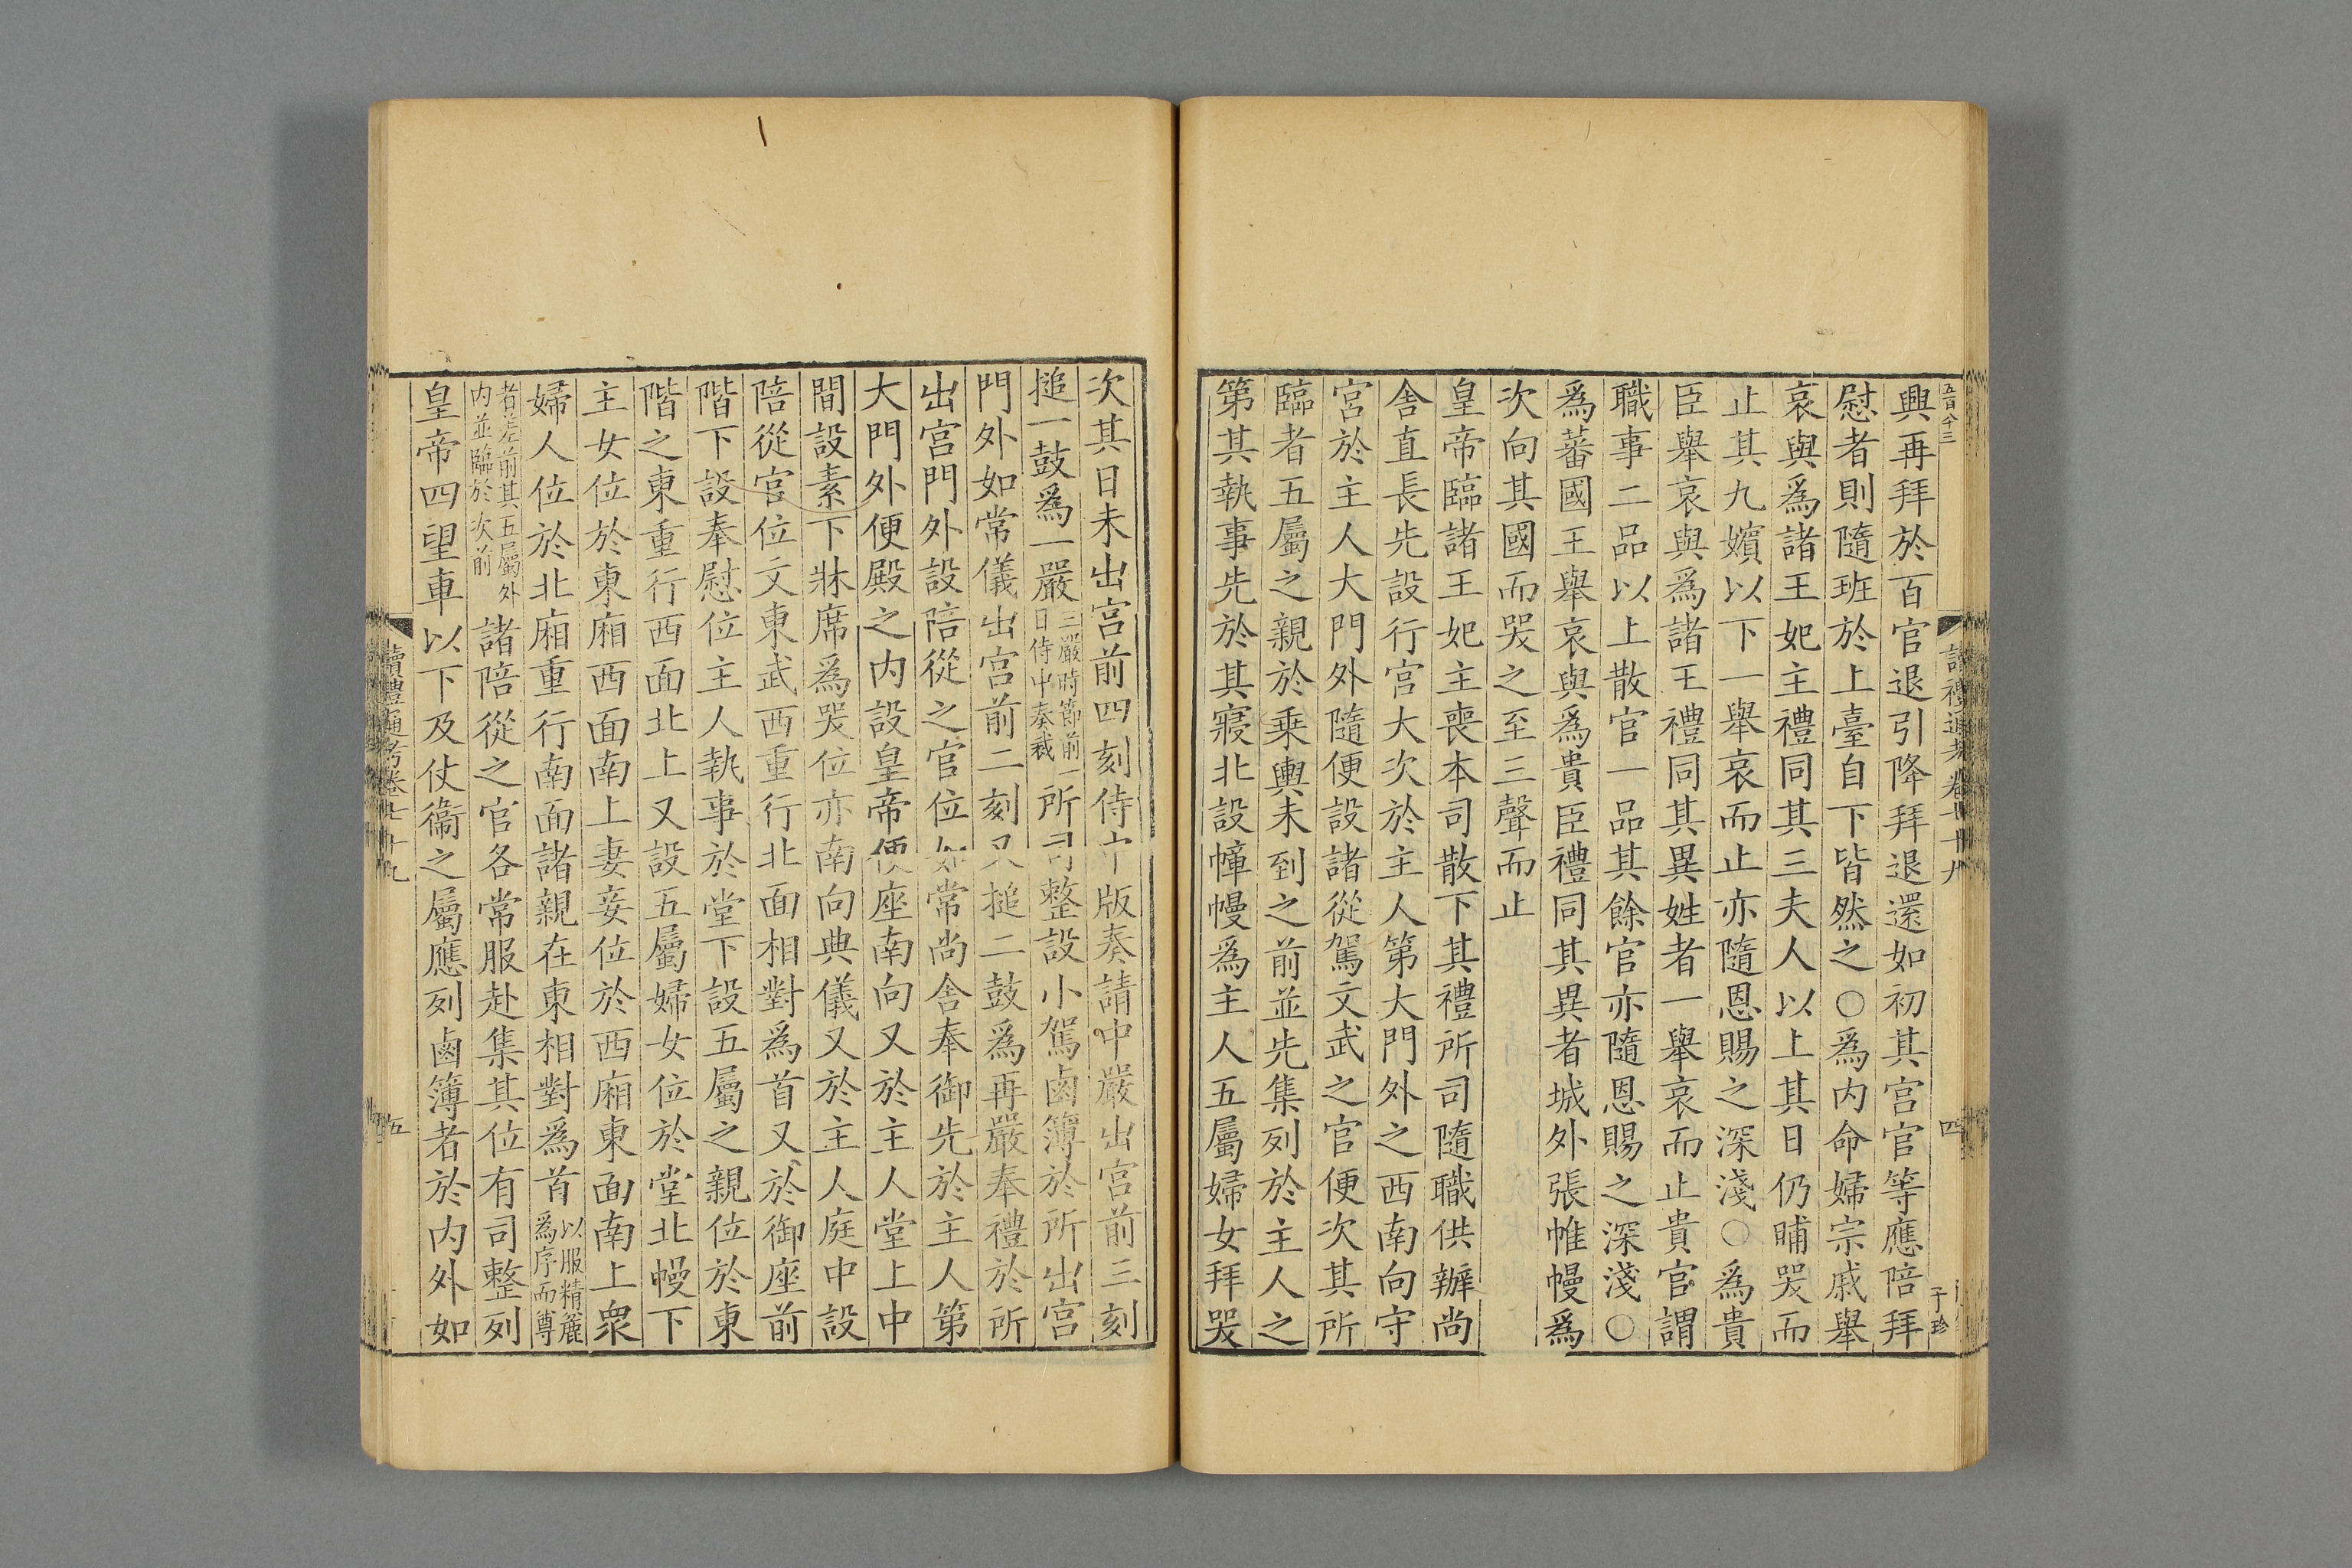 五百八十三
讀禮通考卷七十九
四
子珍
興再拜於百官退引降拜退還如初其宮官等應陪拜
慰者則隨班於上臺自下皆然之○爲内命婦宗戚舉
哀與爲諸王妃主禮同其三夫人以上其日仍晡哭而
止其九嬪以下一舉哀而止亦隨恩賜之深淺○爲貴
臣舉哀與爲諸王禮同其異姓者一舉哀而止貴官謂
職事二品以上散官一品其餘官亦隨恩賜之深淺○
爲蕃國王舉哀與爲貴臣禮同其異者城外張帷幔爲
次向其國而哭之至三聲而止
皇帝臨諸王妃主喪本司散下其禮所司隨職供辦尚
舍直長先設行宫大次於主人第大門外之西南向守
宮於主人大門外隨便設諸從駕文武之官便次其所
臨者五屬之親於乗輿未到之前並先集列於主人之
第其執事先於其寢北設幛幔爲主人五屬婦女拜哭
次其日未出宮前四刻侍中版奏請中嚴出宮前三刻
搥一鼓爲一嚴三嚴時節前一日侍中奏裁所司整設小駕鹵簿於所出宮
門外如常儀出宮前二刻又搥二鼓爲再嚴奉禮於所
出宮門外設陪從之官位如常尚舍奉御先於主人第
大門外便殿之内設皇帝便座南向又於主人堂上中
間設素下牀席爲哭位亦南向典儀又於主人庭中設
陪從官位文東武西重行北面相對爲首又於御座前
階下設奉慰位主人執事於堂下設五屬之親位於東
階之東重行西面北上又設五屬婦女位於堂北幔下
主女位於東廂西面南上妻妾位於西廂東面南上衆
婦人位於北廂重行南面諸親在東相對爲首以服精麤爲序而尊
者差前其五屬外内並臨於次前諸陪從之官各常服赴集其位有司整列
皇帝四望車以下及仗衞之屬應列鹵簿者於内外如
讀禮通考卷七十九
五